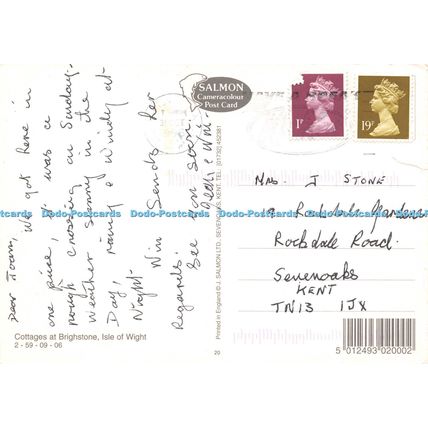 Dear Joan,
We got here in
one piece, it was a
rough crossing on Sunday.
Weather sunny in the
Day, rainy & windy at
Night. Win Sends her
Regards.
See you soon.
SALMON
Cameracolour
Post Card
1P
19P
Mrs. J STONE
Rockdale Gardens
Rockdale Road.
Sevenoaks
KENT
TN13 1JX
Cottages at Brighstone, Isle of Wight
2 - 59 - 09 - 06
20
Printed in England © J. SALMON LTD., SEVENOAKS, KENT. TEL: (01732) 452381
5 012493 020002
Dodo-Postcards Dodo-Postcards Dodo-Postcards